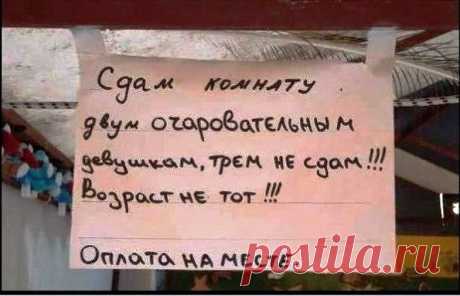 Сдам комнату
двум очаровательным
девушкам, трем не сдам!!!
Возраст не тот!!!
Оплата на месте.
postila.ru